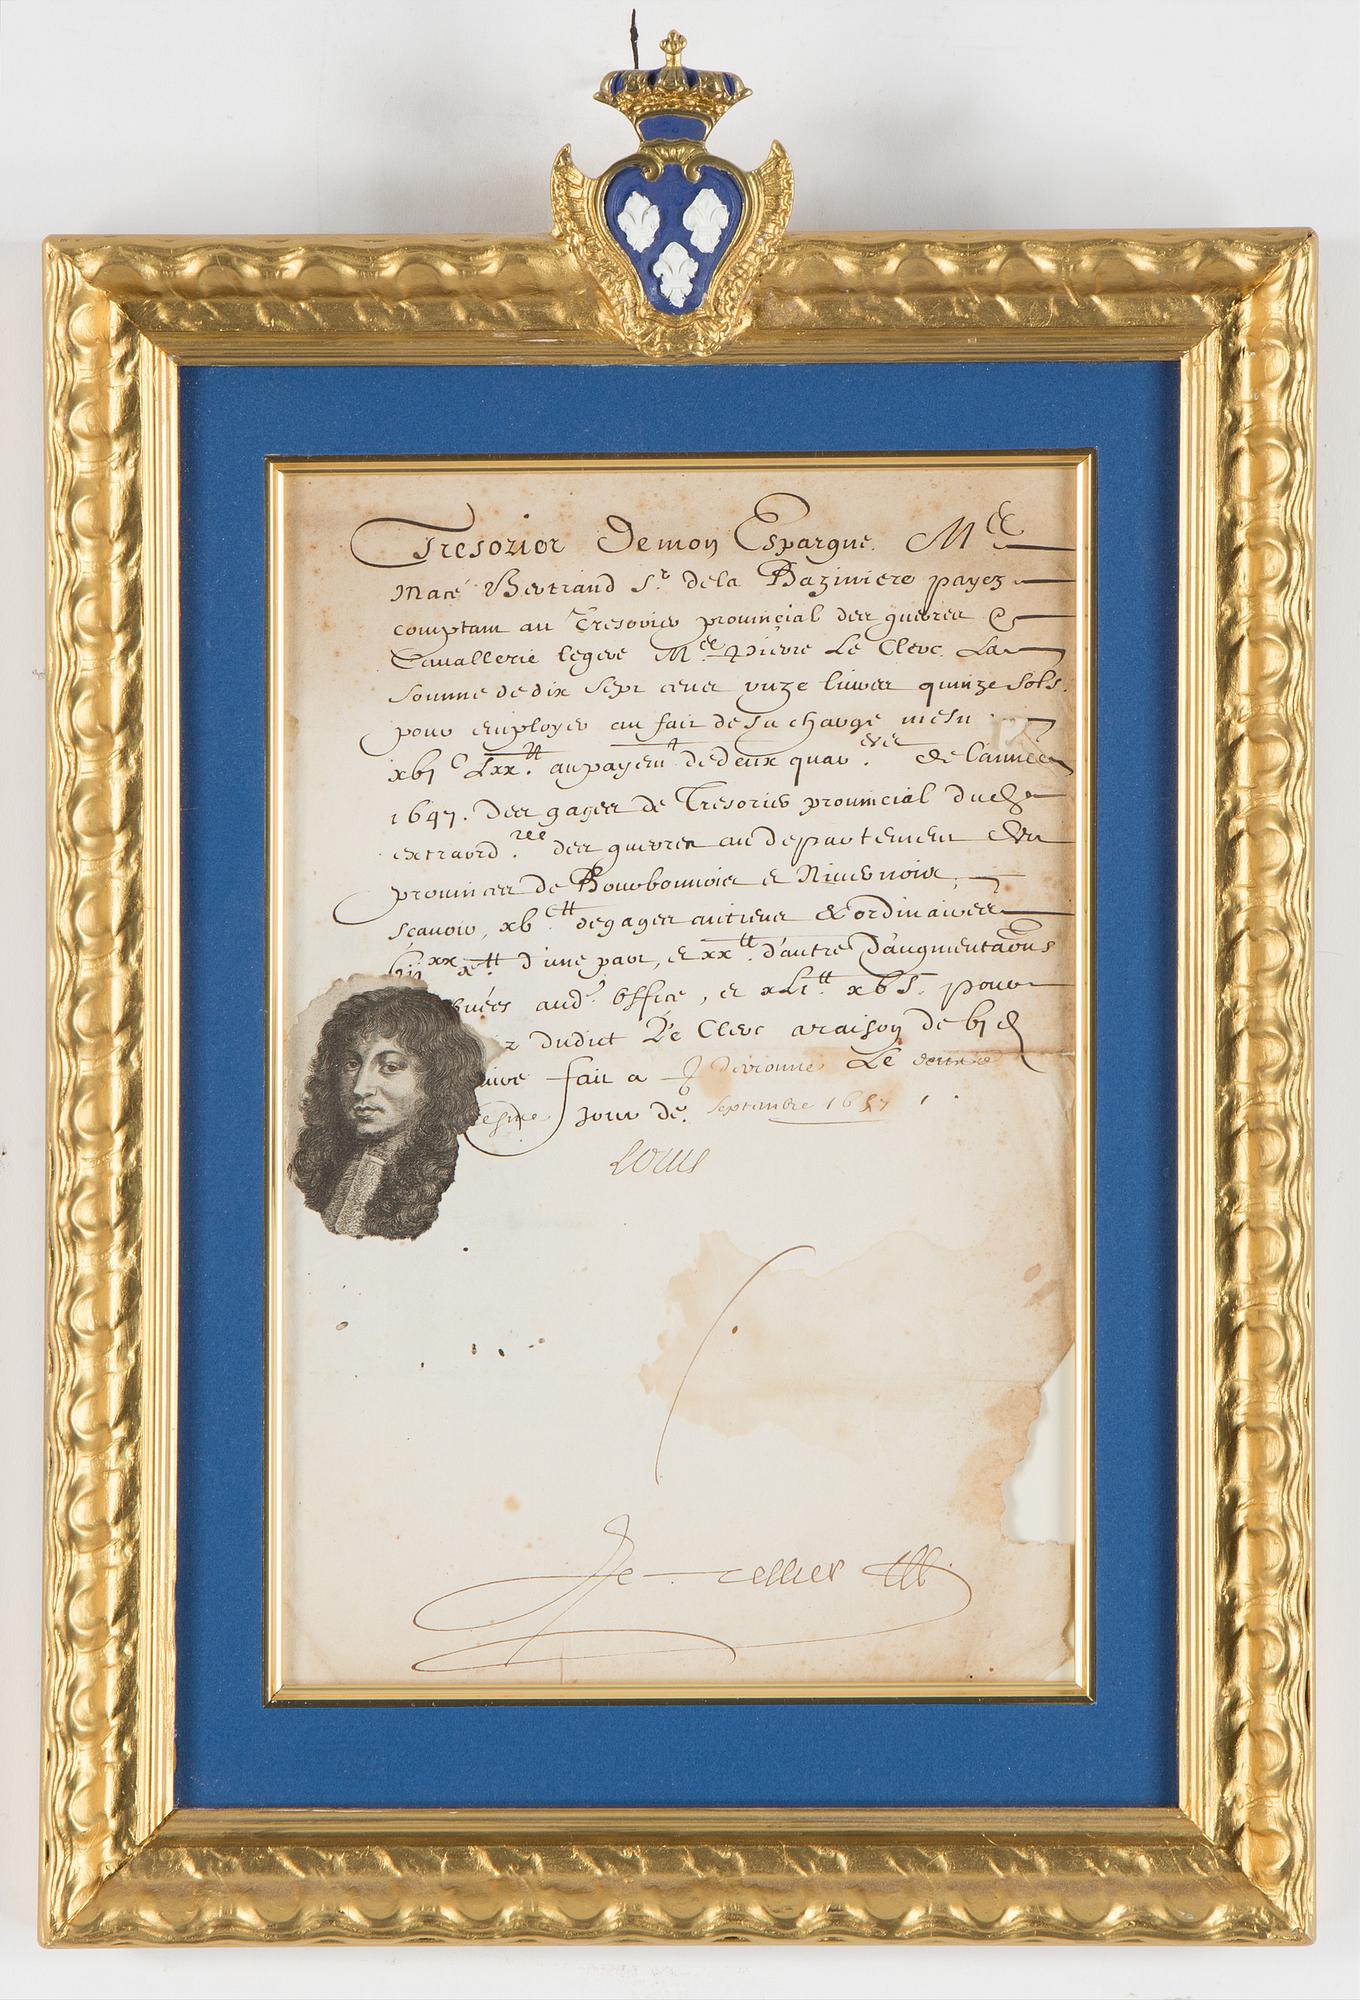 Tresorier Demon Espargne. M.re
Macé Bertrand S.r dela Baziniere payez
comptam au Tresorier prouincial des guerres &
Cauallerie legere M.re Pierre Le Clerc La
somme de dix sept cens unze liures quinze sols.
pour employer au fait de sa charge mesme
xbj c Lxx.tt au payem.t de deux quar.iers de l'année
1647. des gages de Tresorier prouincial dud.
extraord.ree des guerres au departement des
prouinces de Bourbonnois & Niuernois,
scauoir, xb ctt de gages antiens & ordinaires
d'une part, & xx tt. d'autre d'augmentaõns
buées aud.t office, & xLj tt xb s. pour
dudict Le Clerc a raison de bj d
fait a Peronne Le
Jour de. Septembre 1657
Louis
Le Tellier